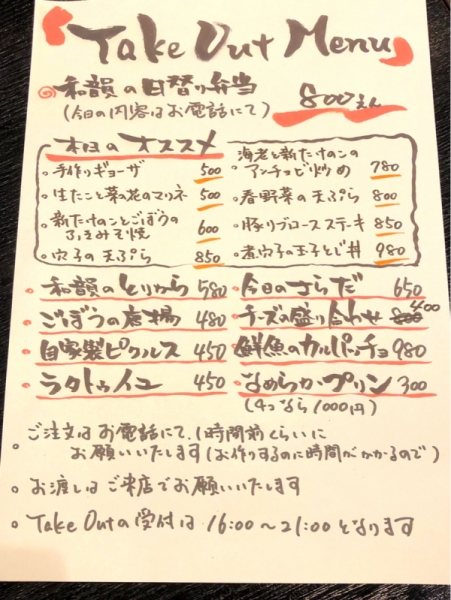 Take Out Menu
和韻の日替り弁当 800えん
(今日の内容はお電話にて)
本日のオススメ
手作りギョーザ 500
生たこと菜の花のマリネ 500
新たけのことごぼうの
みそ焼 600
穴子の天ぷら 850
海老と新たけのこの
アンチョビ炒め 780
春野菜の天ぷら 800
豚リブロースステーキ 850
煮穴子の玉子とじ丼 980
和韻のとりから 580
ごぼうの唐揚 480
自家製ピクルス 450
ラタトゥイユ 450
今日のさらだ 650
チーズの盛り合わせ 400
鮮魚のカルパッチョ 980
なめらかプリン 300
(4つなら1000円)
ご注文はお電話にて、1時間前くらいに
お願いいたします(お作りするのに時間がかかるので)
お渡しはご来店でお願いいたします
Take Outの受付は 16:00〜21:00となります